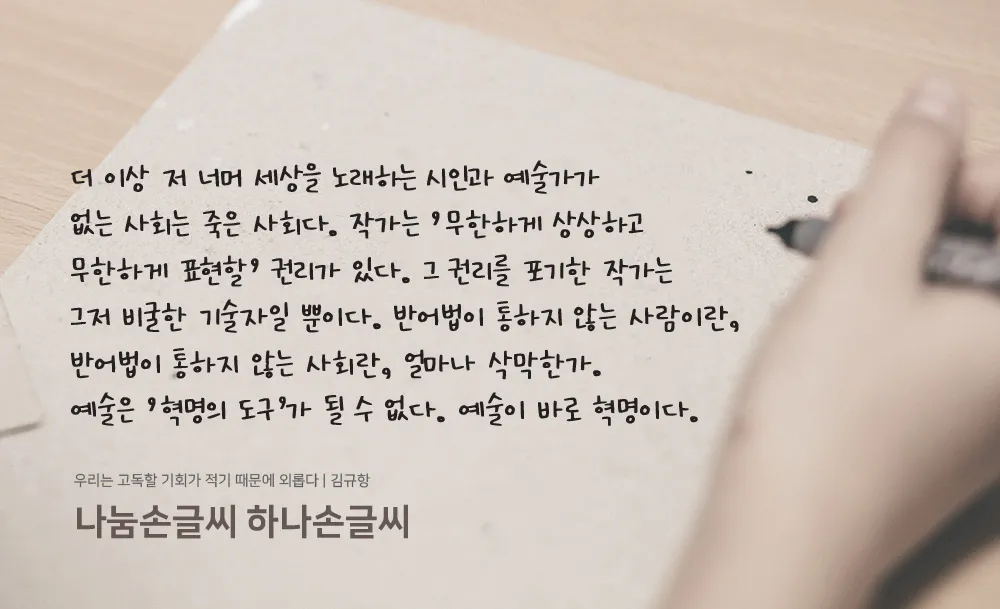 더 이상 저 너머 세상을 노래하는 시인과 예술가가
없는 사회는 죽은 사회다. 작가는 '무한하게 상상하고
무한하게 표현할' 권리가 있다. 그 권리를 포기한 작가는
그저 비굴한 기술자일 뿐이다. 반어법이 통하지 않는 사람이란,
반어법이 통하지 않는 사회란, 얼마나 삭막한가.
예술은 '혁명의 도구'가 될 수 없다. 예술이 바로 혁명이다.
우리는 고독할 기회가 적기 때문에 외롭다 | 김규항
나눔손글씨 하나손글씨